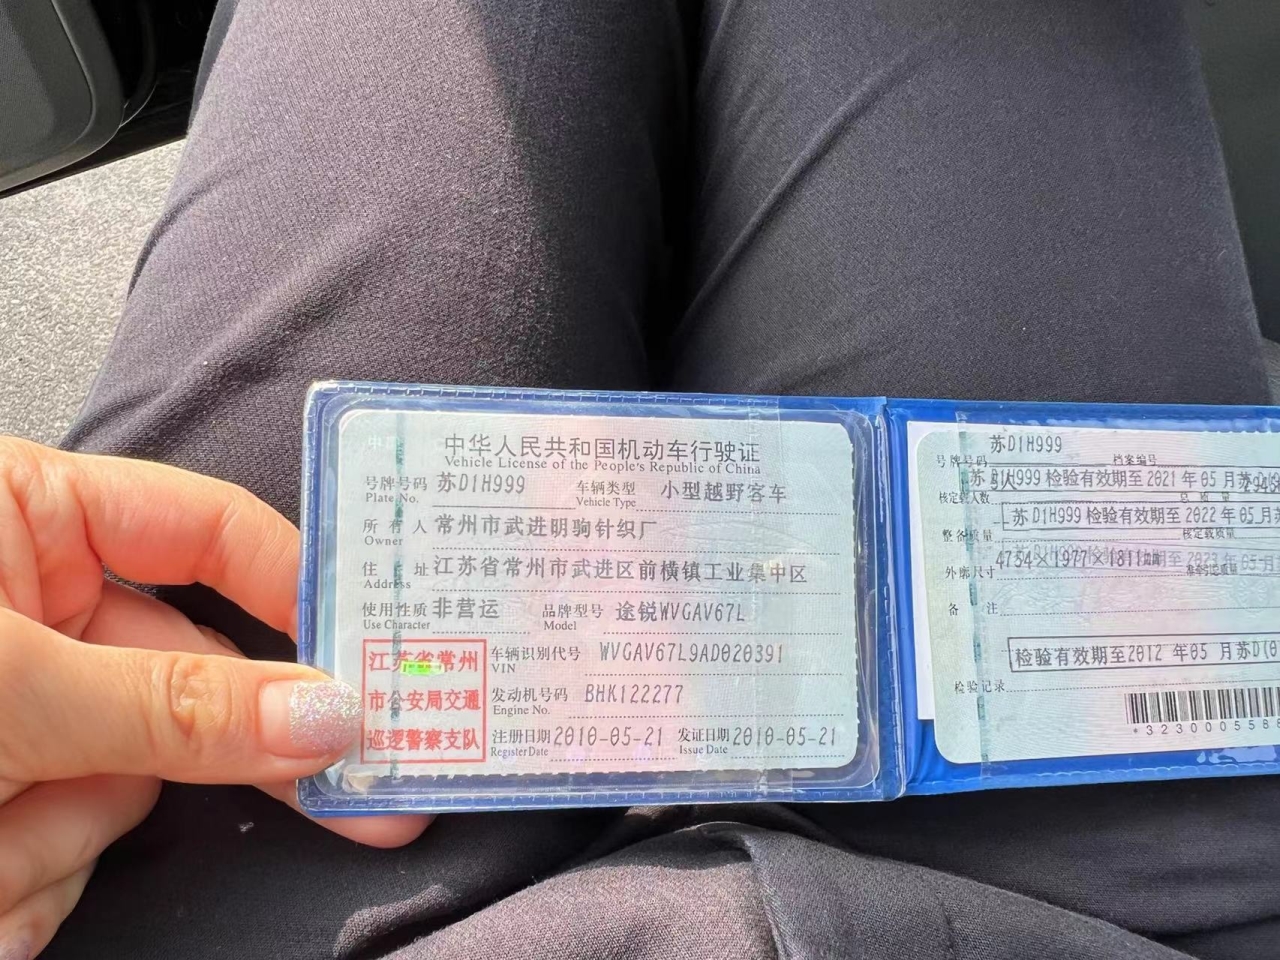 中华人民共和国机动车行驶证
Vehicle License of the People's Republic of China
号牌号码 苏D1H999 车辆类型 小型越野客车
Plate No. Vehicle Type
所有人 常州市武进明驹针织厂
Owner
住址 江苏省常州市武进区前横镇工业集中区
Address
使用性质 非营运 品牌型号 途锐WVGAV67L
Use Character Model
江苏省常州
市公安局交通
巡逻警察支队
车辆识别代号 WVGAV67L9AD020391
VIN
发动机号码 BHK122277
Engine No.
注册日期 2010-05-21 发证日期 2010-05-21
Register Date Issue Date
苏D1H999
号牌号码 档案编号
苏D1H999检验有效期至2021年05月
核定载人数 总质量
苏D1H999检验有效期至2022年05月
整备质量 核定载质量
4734×1977×1811
外廓尺寸
备注
检验有效期至2012年05月苏D
检验记录